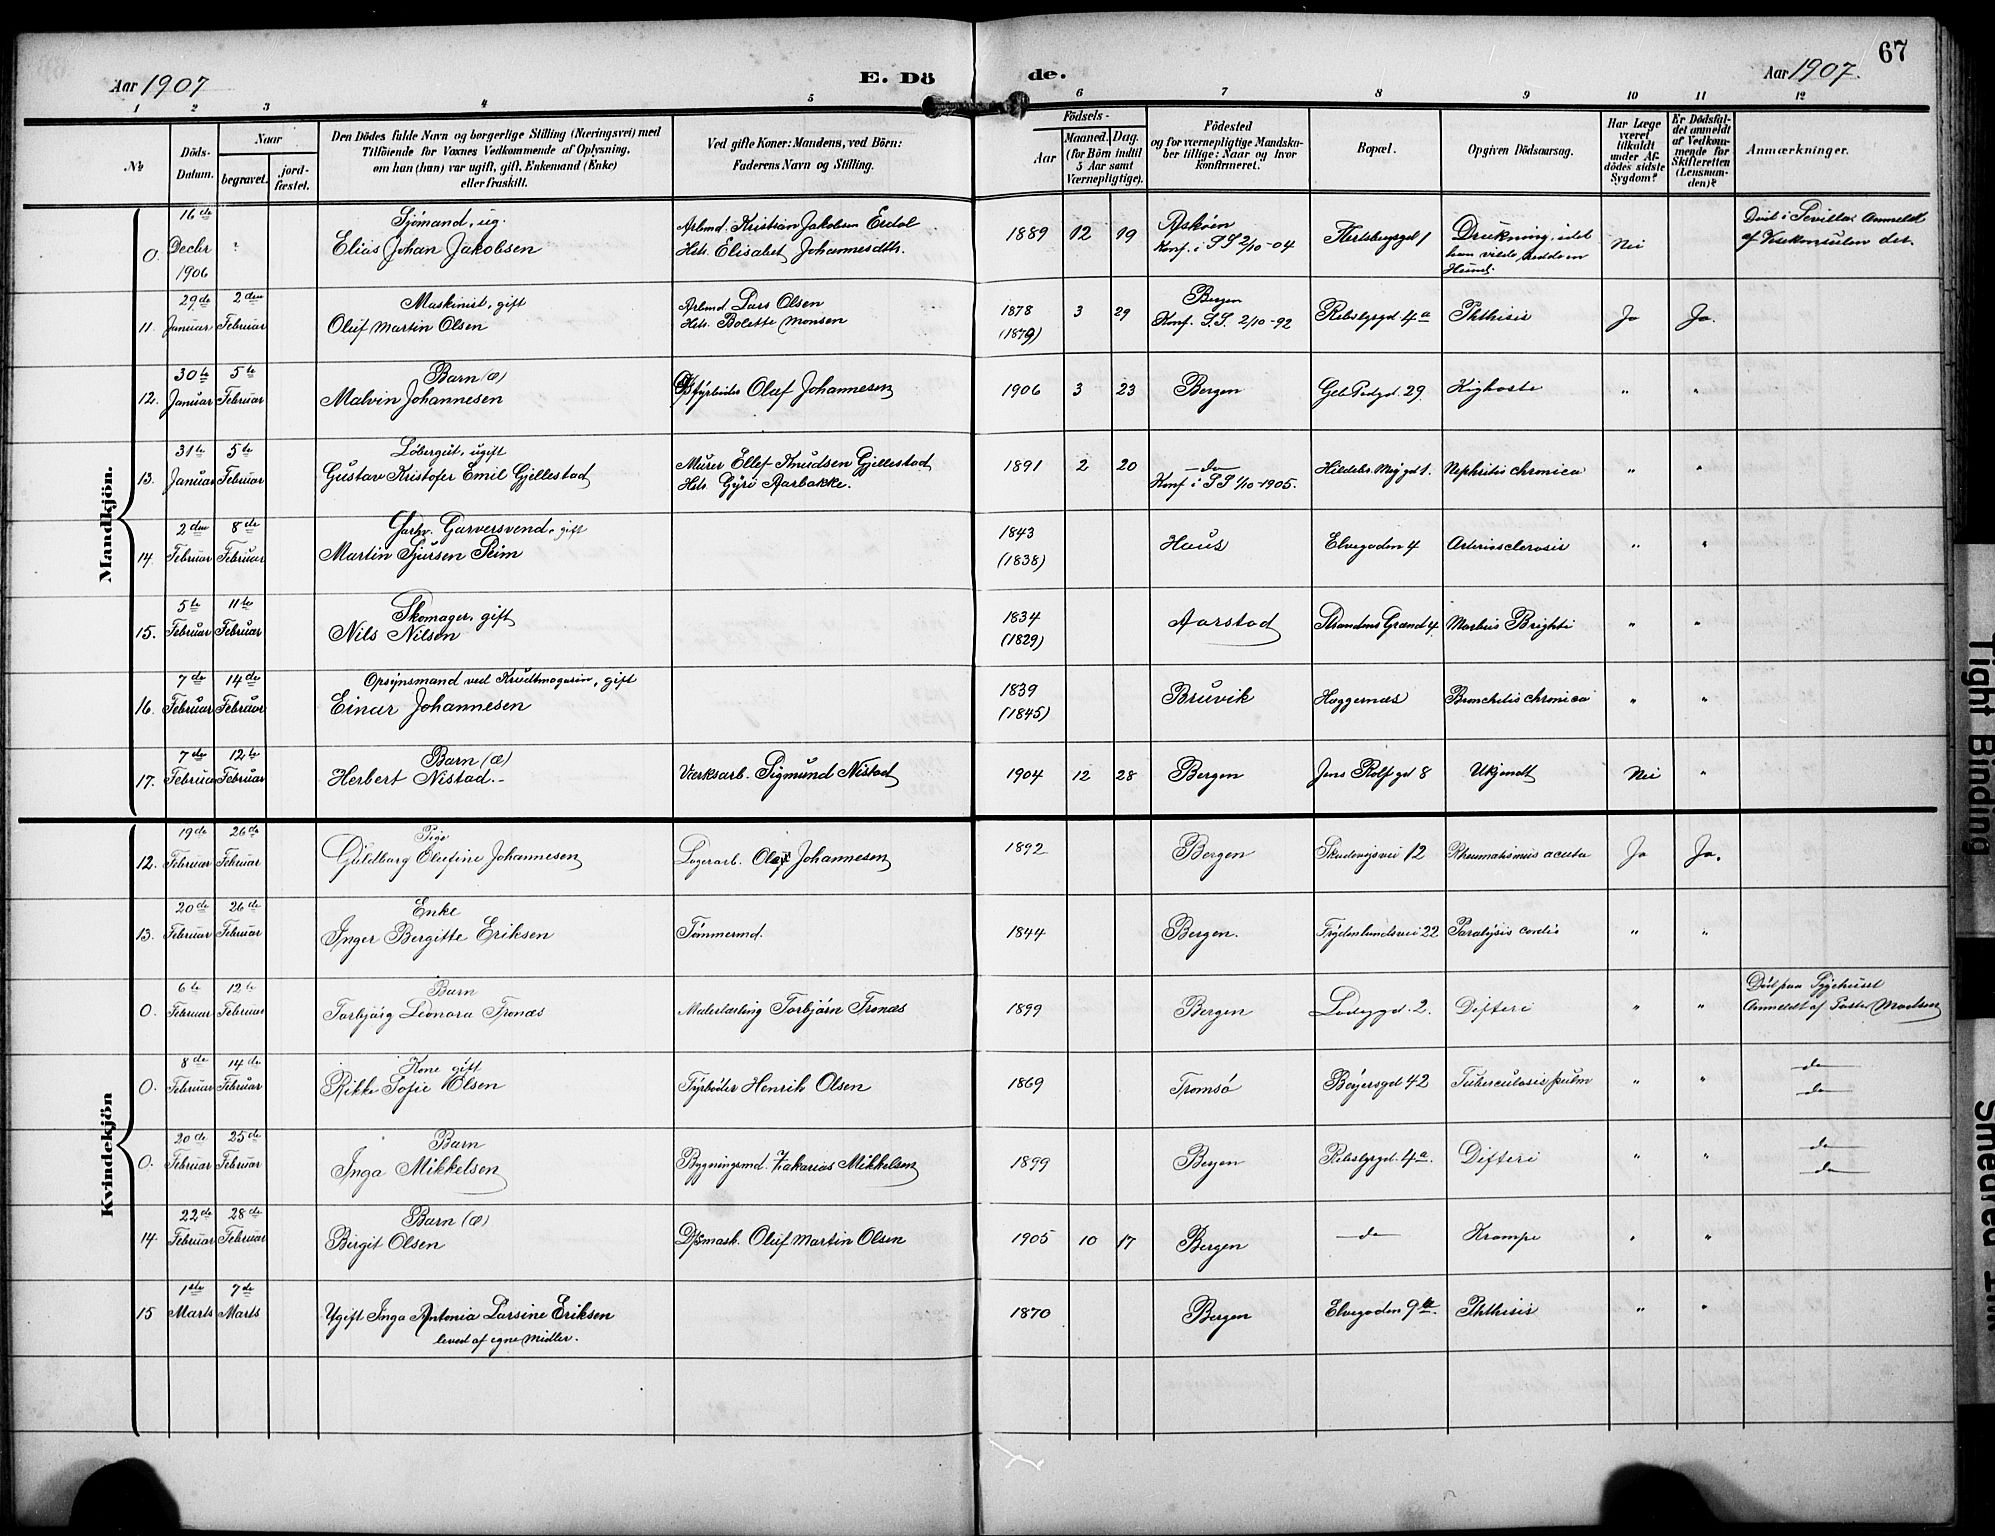 67
Aar 1907
E. Dö
de.
Aar 1907.
1 2 3 4 5 6 7 8 9 10 11 12
№
Döds-Datum.
Naar
begravet.
jord-fæstet.
Den Dödes fulde Navn og borgerlige Stilling (Næringsvei) med
Tilföiende for Voxnes Vedkommende af Oplysning,
om han (hun) var ugift, gift, Enkemand (Enke)
eller fraskilt.
Ved gifte Koner: Mandens, ved Börn:
Faderens Navn og Stilling.
Födsels-
Aar
Maaned. Dag.
(for Börn indtil
5 Aar samt
Værnepligtige).
Födested
og for værnepligtige Mandska-
ber tillige: Naar og hvor
konfirmeret.
Bopæl.
Opgiven Dödsaarsag.
Har Læge
været
tilkaldt
under Af-
dödes sidste
Sygdom?
Er Dödsfal-
det anmeldt
af Vedkom-
mende for
Skifteretten
(Lensman-
den)?
Anmærkninger.
Mandkjön.
0. 16de Decbr 1906 Sjömand, ug. Elias Johan Jakobsen Arbmd. Kristian Jakobsen Eidol Hstr. Elisabet Johannesdtr. 1889 12 19 Askøen Konf. i S.S 2/10-04 Drukning, idet han vilde redde en Hund. Nei Död i Sevilla. Anmeldt af Vicekonsulen der.
11. 29de Januar 2den Februar Maskinist, gift Oluf Martin Olsen Arbmd. Lars Olsen Hstr. Bolette Monsen 1878 (1879) 3 29 Bergen Konf. S.S. 2/10-92 Rebslgrgd. 4a Phthisis Ja Ja.
12. 30te Januar 5te Februar Barn (æ) Malvin Johannesen Olaf Johannesen 1906 3 23 Bergen 29 Kighoste " "
13. 31te Januar 5te Februar Løbergut, ugift Gustav Kristofer Emil Gjellestad Murer Ellef Knudsen Gjellestad Hstr. Gyri Aarbakke. 1891 2 20 do Konf. i S S 1/10-1905. Nephritis chronica " "
14. 2den Februar 8de Februar Garversvend, gift Martin Sjursen Seim 1843 (1838) Haus Elvegaden 4 Arteriosclerosis " "
15. 5te Februar 11te Februar Skomager, gift Nils Nilsen 1834 (1829) Aarstad Strandens Grænd 4. Morbus Brighti " "
16. 7de Februar 14de Februar Opsynsmand ved Krudtmagasin, gift Einar Johannesen 1839 (1845) Bruvik Hæggernæs Bronchitis chronica " "
17. 7de Februar 12te Februar Barn (æ) Herbert Nistad. Værksarb. Sigmund Nistad 1904 12 28 Bergen Jens Rolfsgd 8 Ukjendt Nei "
Kvindekjön
12. 19de Februar 26de Februar Pige Guldborg Olufine Johannesen Lagerarb. Olaf Johannesen 1892 Bergen Skudeviksvei 12 Rheumatismus acuta Ja Ja.
13. 20de Februar 26de Februar Enke Inger Bergitte Eriksen Tømmermd. 1844 Bergen. Frydenlundsvei 22 Paralysis cordis " "
0. 6te Februar 12te Februar Barn Torbjørg Leonora Tronæs Malerlærling Torbjørn Tronæs 1899 Bergen Ladeggd. 2. Difteri " " Död paa Sygehuset Anmeldt af Pastor Madsen
0. 8de Februar 14de Februar Kone gift Rikke Sofie Olsen Fyrbøder Henrik Olsen 1869 Tromsø Bøyersgd 42 Tuberculosis pulm " " do do
0. 20de Februar 25de Februar Barn Inga Mikkelsen Bygningsmd. Zakarias Mikkelsen 1899 Bergen Rebslgrgd. 4a. Difteri " " do do
14. 22de Februar 28de Februar Barn (æ) Birgit Olsen D/smask. Oluf Martin Olsen 1905 10 17 Bergen do Krampe " "
15 1ste Marts 7de Marts Ugift Inga Antonia Larsine Eriksen leved af egne Midler. 1870 Bergen Elvegaden 9a Phthisis " "
Tight Binding
Smeared Ink